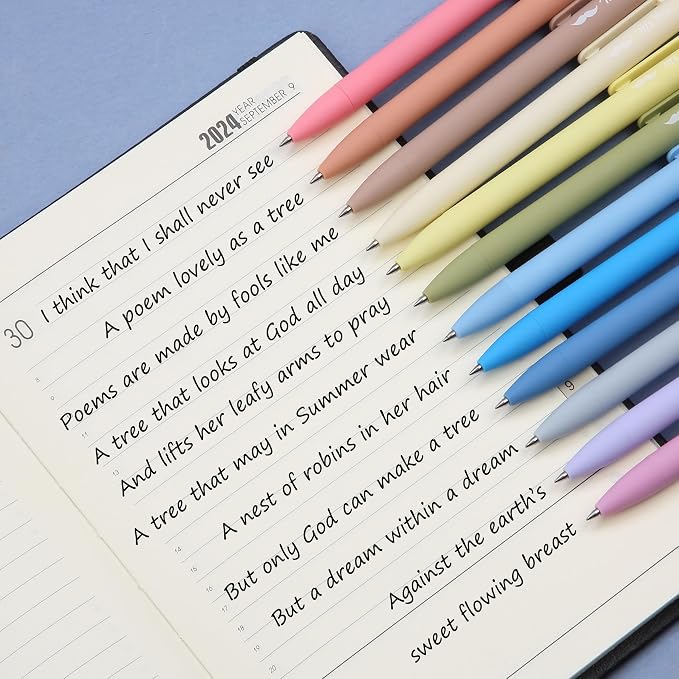 2024 YEAR
SEPTEMBER 9
30
I think that I shall never see
A poem lovely as a tree
Poems are made by fools like me
A tree that looks at God all day
And lifts her leafy arms to pray
A tree that may in Summer wear
A nest of robins in her hair
But only God can make a tree
But a dream within a dream
Against the earth's
sweet flowing breast
8
9
11
13
14
16
17
18
19
20
9